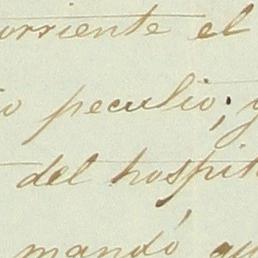 orriente el
io peculio; y
del hospit
mandó qu